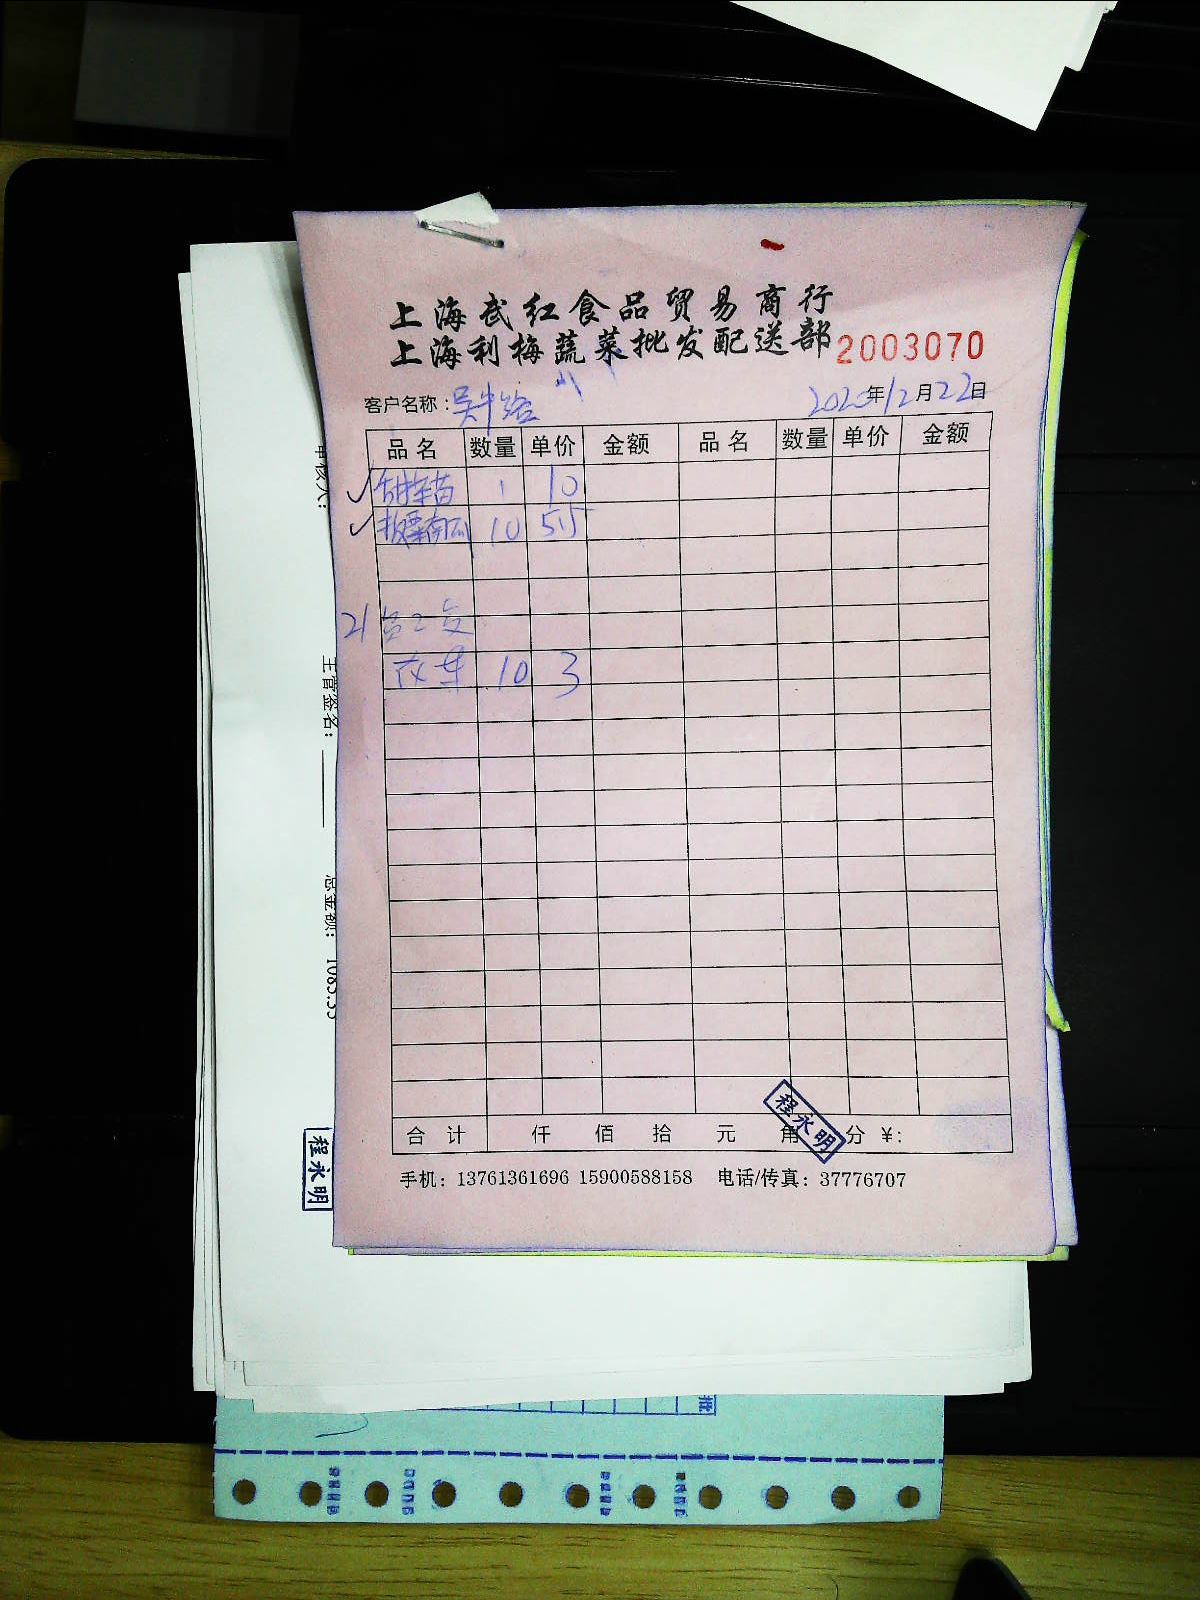 上海武红食品贸易商行
上海利梅蔬菜批发配送部 2003070
客户名称: 2020年12月22日
品名 数量 单价 金额 品名 数量 单价 金额
1 10
板栗南瓜 10 5.5
21 员工
10 3
合计 仟 佰 拾 元 角 分 ¥:
手机: 13761361696 15900588158 电话/传真: 37776707
程永明
审核人:
主管签名:
总金额: 1085.55
程永明